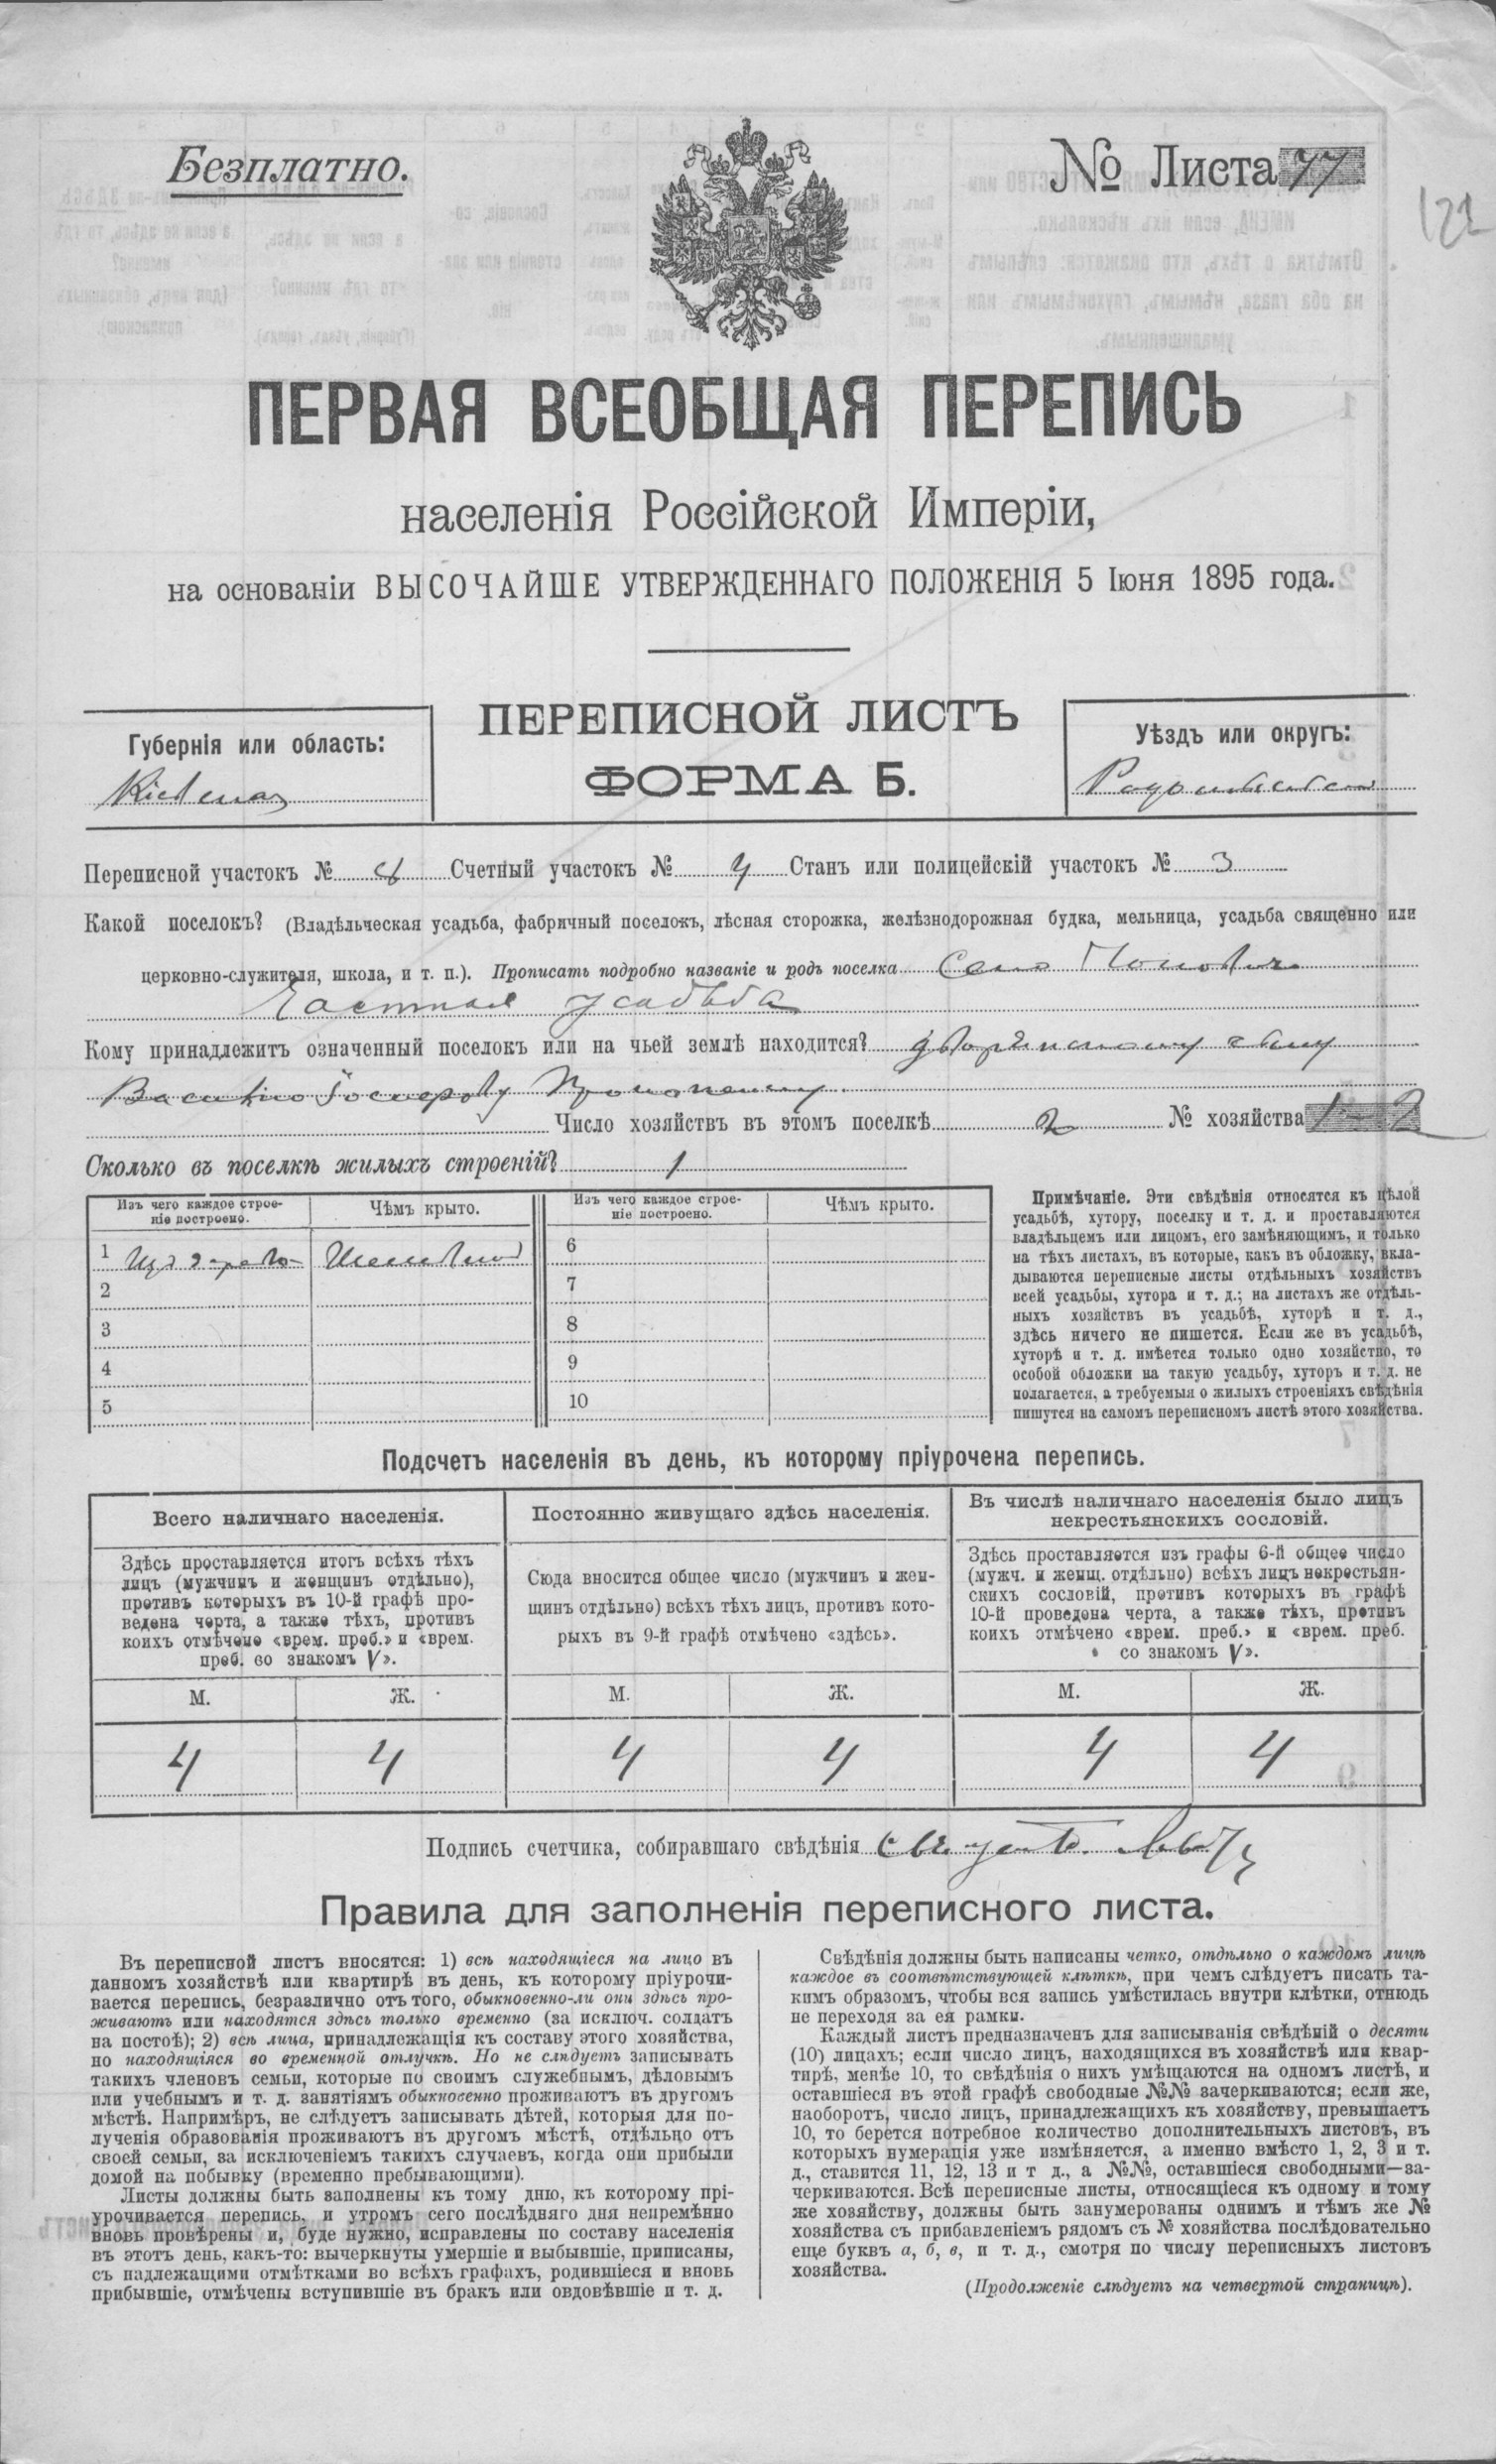 Безплатно.
№ Листа 77
121
ПЕРВАЯ ВСЕОБЩАЯ ПЕРЕПИСЬ
населенія Россійской Имперіи,
на основаніи ВЫСОЧАЙШЕ УТВЕРЖДЕННАГО ПОЛОЖЕНІЯ 5 Іюня 1895 года.
ПЕРЕПИСНОЙ ЛИСТЪ
ФОРМА Б.
Губернія или область:
Кіевская
Уѣздъ или округъ:
Радомысльскій
Переписной участокъ № Счетный участокъ № 4 Станъ или полицейскій участокъ № 3
Какой поселокъ? (Владѣльческая усадьба, фабричный поселокъ, лѣсная сторожка, желѣзнодорожная будка, мельница, усадьба священно или
церковно-служителя, школа, и т. п.). Прописать подробно названіе и родъ поселка Село
Частная усадьба
Кому принадлежитъ означенный поселокъ или на чьей землѣ находится? дворянскому сыну
Число хозяйствъ въ этомъ поселкѣ 2 № хозяйства 1-2
Сколько въ поселкѣ жилыхъ строеній? 1
Изъ чего каждое строе-
ніе построено.
Чѣмъ крыто.
Изъ чего каждое строе-
ніе построено.
Чѣмъ крыто.
1 Изъ дерева
6
2
7
3
8
4
9
5
10
Примѣчаніе. Эти свѣдѣнія относятся къ цѣлой
усадьбѣ, хутору, поселку и т. д. и проставляются
владѣльцемъ или лицомъ, его замѣняющимъ, и только
на тѣхъ листахъ, въ которые, какъ въ обложку, вкла-
дываются переписные листы отдѣльныхъ хозяйствъ
всей усадьбы, хутора и т. д.; на листахъ же отдѣль-
ныхъ хозяйствъ въ усадьбѣ, хуторѣ и т. д.,
здѣсь ничего не пишется. Если же въ усадьбѣ,
хуторѣ и т. д. имѣется только одно хозяйство, то
особой обложки на такую усадьбу, хуторъ и т. д. не
полагается, а требуемыя о жилыхъ строеніяхъ свѣдѣнія
пишутся на самомъ переписномъ листѣ этого хозяйства.
Подсчетъ населенія въ день, къ которому пріурочена перепись.
Всего наличнаго населенія.
Здѣсь проставляется итогъ всѣхъ тѣхъ
лицъ (мужчинъ и женщинъ отдѣльно),
противъ которыхъ въ 10-й графѣ про-
ведена черта, а также тѣхъ, противъ
коихъ отмѣчено «врем. преб.» и «врем.
преб. со знакомъ V».
Постоянно живущаго здѣсь населенія.
Сюда вносится общее число (мужчинъ и жен-
щинъ отдѣльно) всѣхъ тѣхъ лицъ, противъ кото-
рыхъ въ 9-й графѣ отмѣчено «здѣсь».
Въ числѣ наличнаго населенія было лицъ
некрестьянскихъ сословій.
Здѣсь проставляется изъ графы 6-й общее число
(мужч. и женщ. отдѣльно) всѣхъ лицъ некрестьян-
скихъ сословій, противъ которыхъ въ графѣ
10-й проведена черта, а также тѣхъ, противъ
коихъ отмѣчено «врем. преб.» и «врем. преб.
со знакомъ V».
М. Ж. М. Ж. М. Ж.
4 4 4 4 4 4
Подпись счетчика, собиравшаго свѣдѣнія
Правила для заполненія переписного листа.
Въ переписной листъ вносятся: 1) всѣ находящіеся на лицо въ
данномъ хозяйствѣ или квартирѣ въ день, къ которому пріурочи-
вается перепись, безразлично отъ того, обыкновенно-ли они здѣсь про-
живаютъ или находятся здѣсь только временно (за исключ. солдатъ
на постоѣ); 2) всѣ лица, принадлежащія къ составу этого хозяйства,
но находящіяся во временной отлучкѣ. Но не слѣдуетъ записывать
такихъ членовъ семьи, которые по своимъ служебнымъ, дѣловымъ
или учебнымъ и т. д. занятіямъ обыкновенно проживаютъ въ другомъ
мѣстѣ. Напримѣръ, не слѣдуетъ записывать дѣтей, которыя для по-
лученія образованія проживаютъ въ другомъ мѣстѣ, отдѣльно отъ
своей семьи, за исключеніемъ такихъ случаевъ, когда они прибыли
домой на побывку (временно пребывающими).
Листы должны быть заполнены къ тому дню, къ которому прі-
урочивается перепись, и утромъ сего послѣдняго дня непремѣнно
вновь провѣрены и, буде нужно, исправлены по составу населенія
въ этотъ день, какъ-то: вычеркнуты умершіе и выбывшіе, приписаны,
съ надлежащими отмѣтками во всѣхъ графахъ, родившіеся и вновь
прибывшіе, отмѣчены вступившіе въ бракъ или овдовѣвшіе и т. д.
Свѣдѣнія должны быть написаны четко, отдѣльно о каждомъ лицѣ
каждое въ соотвѣтствующей клѣткѣ, при чемъ слѣдуетъ писать та-
кимъ образомъ, чтобы вся запись умѣстилась внутри клѣтки, отнюдь
не переходя за ея рамки.
Каждый листъ предназначенъ для записыванія свѣдѣній о десяти
(10) лицахъ; если число лицъ, находящихся въ хозяйствѣ или квар-
тирѣ, менѣе 10, то свѣдѣнія о нихъ умѣщаются на одномъ листѣ, и
оставшіеся въ этой графѣ свободные №№ зачеркиваются; если же,
наоборотъ, число лицъ, принадлежащихъ къ хозяйству, превышаетъ
10, то берется потребное количество дополнительныхъ листовъ, въ
которыхъ нумерація уже измѣняется, а именно вмѣсто 1, 2, 3 и т.
д., ставится 11, 12, 13 и т д., а №№, оставшіеся свободными—за-
черкиваются. Всѣ переписные листы, относящіеся къ одному и тому
же хозяйству, должны быть занумерованы однимъ и тѣмъ же №
хозяйства съ прибавленіемъ рядомъ съ № хозяйства послѣдовательно
еще буквъ а, б, в, и т. д., смотря по числу переписныхъ листовъ
хозяйства.
(Продолженіе слѣдуетъ на четвертой страницѣ).